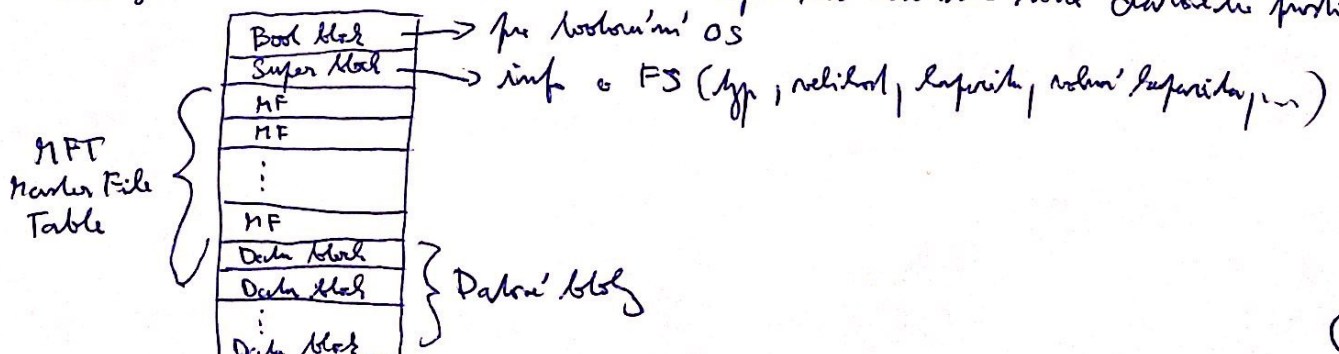 Boot blok → pro bootování OS
Super block → inf o FS (typ, velikost, kapacita, volná kapacita, ...)
MF
MF
⋮
MF
MFT
Master File
Table
Data block
Data blok
⋮
Data blok
Datové bloky